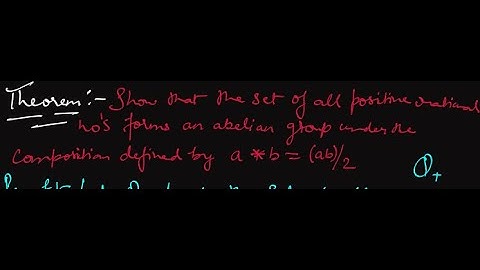 Theorem:- Show that the set of all positive rational
no's forms an abelian group under the
composition defined by a * b = (ab)/2
Q+